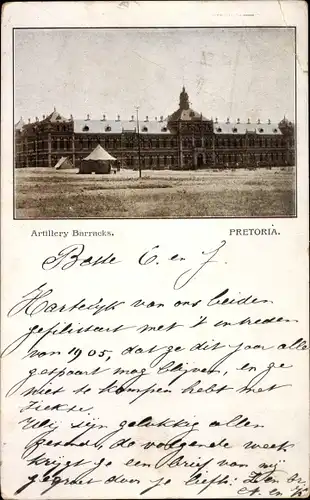 Artillery Barracks.
PRETORIA.
Beste C. en J.
Hartelijk van ons beiden
gefelicitart met 't intreden
van 1905, dat ge dit jaar alle
gespaart mag blijven, en ge
niet te kampen hebt met
ziekte.
Wij zijn gelukkig allen
gezond, de volgende week
krijgt ge een brief van mij
gegroet door je liefh.